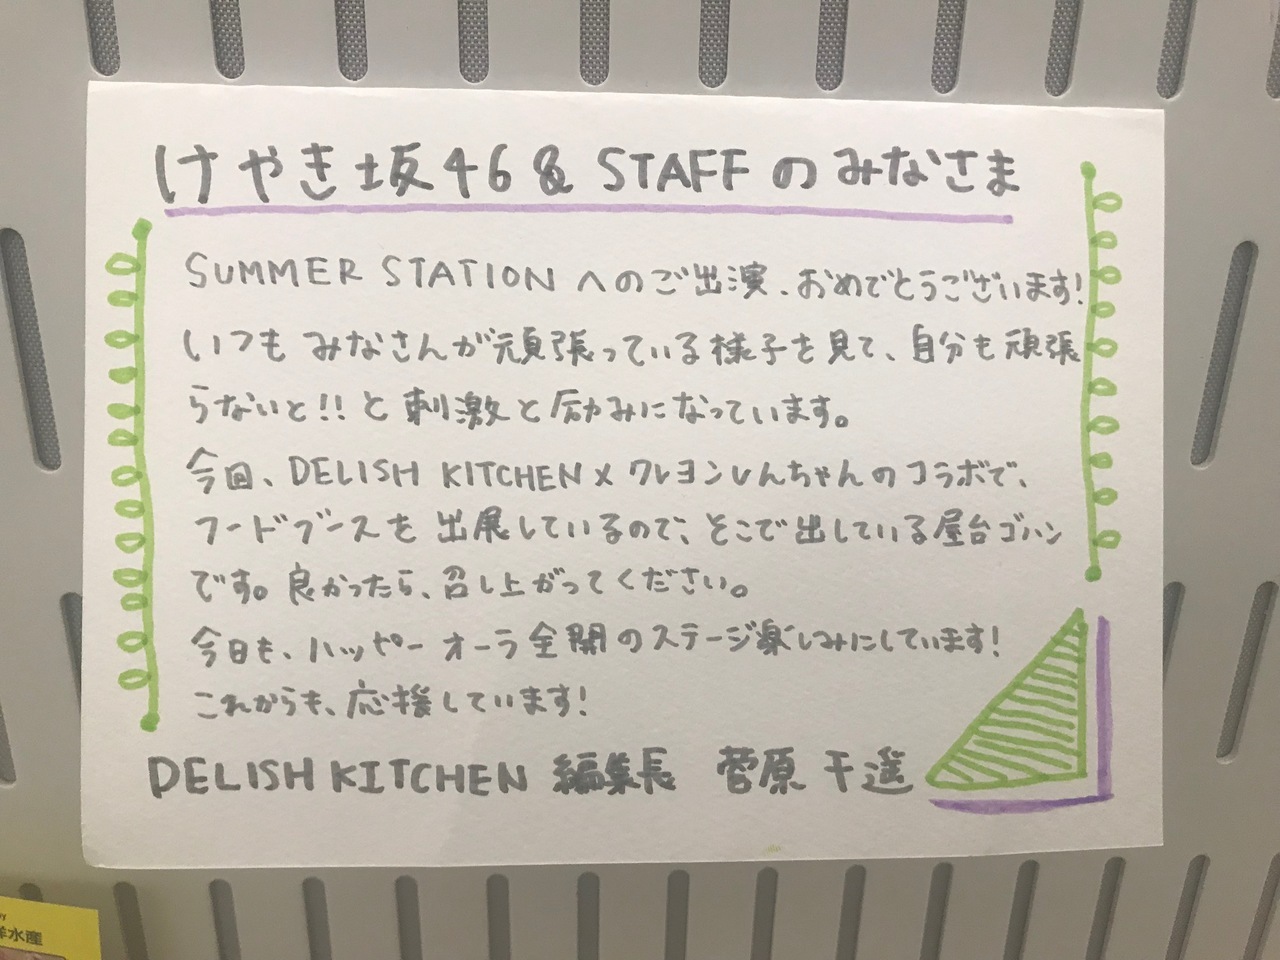 けやき坂46& STAFFのみなさま
SUMMER STATIONへのご出演、おめでとうございます!
いつもみなさんが頑張っている様子を見て、自分も頑張
らないと!!と刺激と励みになっています。
今回、DELISH KITCHEN×クレヨンしんちゃんのコラボで、
フードブースを出展しているので、そこで出している屋台ゴハン
です。良かったら、召し上がってください。
今日も、ハッピーオーラ全開のステージ楽しみにしています!
これからも、応援しています!
DELISH KITCHEN 編集長 菅原 千遥
洋水産